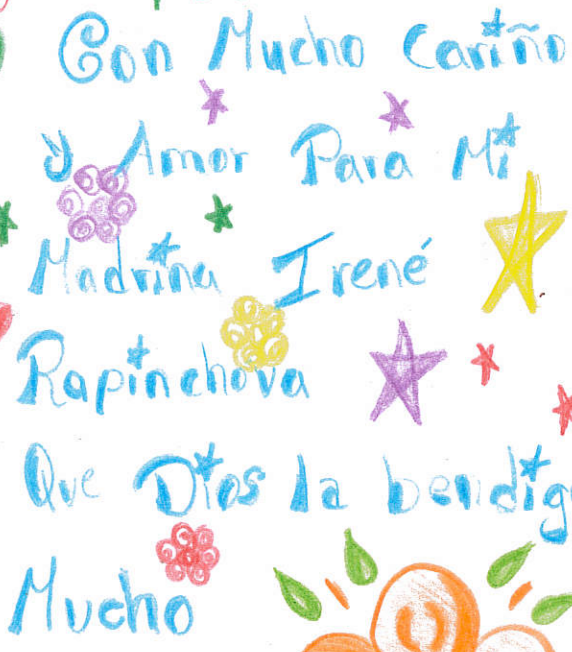 Con Mucho Cariño
y Amor Para Mi
Madrina Irené
Rapinchova
Que Dios la bendig
Mucho